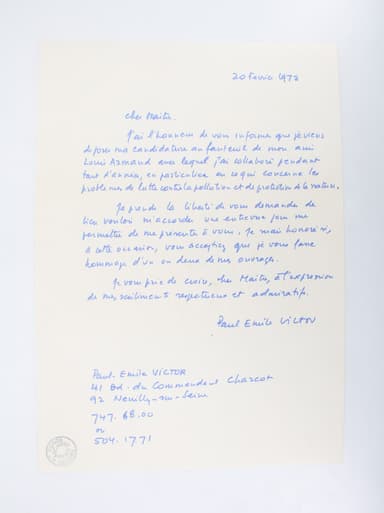 20 Février 1972
Cher Maître,
J'ai l'honneur de vous informer que je viens
de poser ma candidature au fauteuil de mon ami
Louis Armand avec lequel j'ai collaboré pendant
tant d'années, en particulier en ce qui concerne les
problèmes de lutte contre la pollution et de protection de la nature.
Je prends la liberté de vous demander de
bien vouloir m'accorder une entrevue pour me
permettre de me présenter à vous. Je serais honoré si,
à cette occasion, vous acceptiez que je vous fasse
hommage d'un ou deux de mes ouvrages.
Je vous prie de croire, cher Maître, à l'expression
de mes sentiments respectueux et admiratifs.
Paul Emile VICTOR
Paul-Emile VICTOR
41 Bd. du Commandant Charcot
92 Neuilly-sur-Seine
747.68.00
ou
504.1771